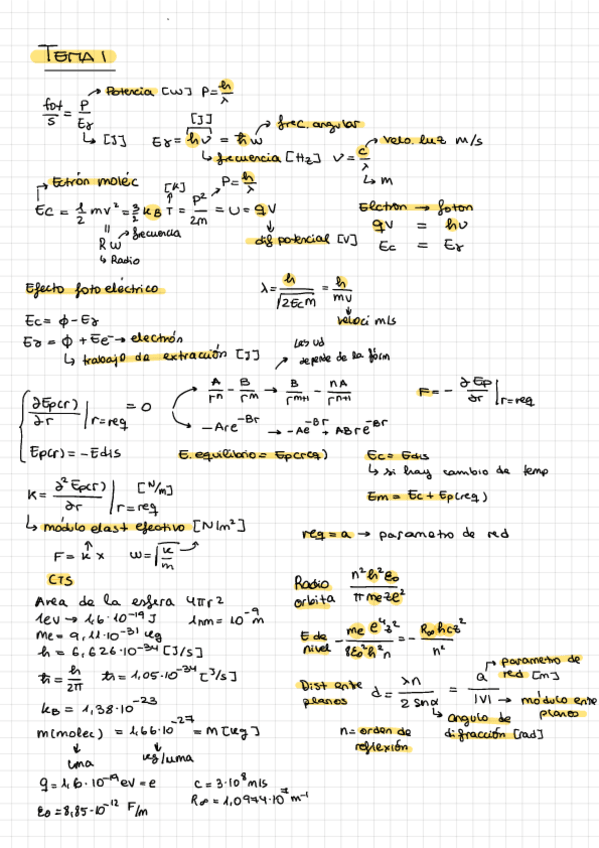 TEMA 1
fot/s = P/Eγ → Potencia [W] P = h/λ
↳ [J] Eγ = hν = ħω → frec. angular
[J]
↳ frecuencia [Hz] ν = c/λ → velo. luz m/s
↳ m
Ectrón moléc [K] P = h/λ
Ec = 1/2 mv² = 3/2 kB T = P²/2m = U = qV
Rω → frecuencia
↳ Radio
dif potencial [V]
Elctron → foton
qV = hν
Ec = Eγ
Efecto fotoeléctrico
λ = h/√2Ecm = h/mv
↳ veloci m/s
Ec = ϕ - Eγ
Eγ = ϕ + Ee⁻ → electrón
↳ trabajo de extracción [J]
depende de la fórm
∂Ep(r)/∂r | r=req = 0
A/rⁿ - B/rᵐ → B/rᵐ⁺¹ - nA/rⁿ⁺¹
-Are^-Br → -Ae^-Br + ABre^-Br
F = - ∂Ep/∂r | r=req
Ep(r) = -Edis
E. equilibrio = Ep(req)
Ec = Edis
↳ si hay cambio de temp
K = ∂²Ep(r)/∂r | r=req [N/m]
Em = Ec + Ep(req)
↳ módulo elast efectivo [N/m²]
req = a → parametro de red
F = k x ω = √k/m
CTS
Area de la esfera 4πr²
1eV → 1,6·10⁻¹⁹ J 1nm = 10⁻⁹ m
me = 9,11·10⁻³¹ kg
h = 6,626·10⁻³⁴ [J/s]
ħ = h/2π ħ = 1,05·10⁻³⁴ [J/s]
kB = 1,38·10⁻²³
m(molec) = 1,66·10⁻²⁷ = m[kg]
uma kg/uma
q = 1,6·10⁻¹⁹ eV = e c = 3·10⁸ m/s
ε0 = 8,85·10⁻¹² F/m R∞ = 1,0974·10⁷ m⁻¹
Radio orbita n²h²ε0/πmeze²
E de nivel - me e⁴z²/8ε0²h²n = - R∞hcz²/n²
Dist ente planos d = λn/2 senα = a/|V|
→ parametro de red [m]
→ módulo ente planos
↳ angulo de difracción [rad]
n = orden de reflexión